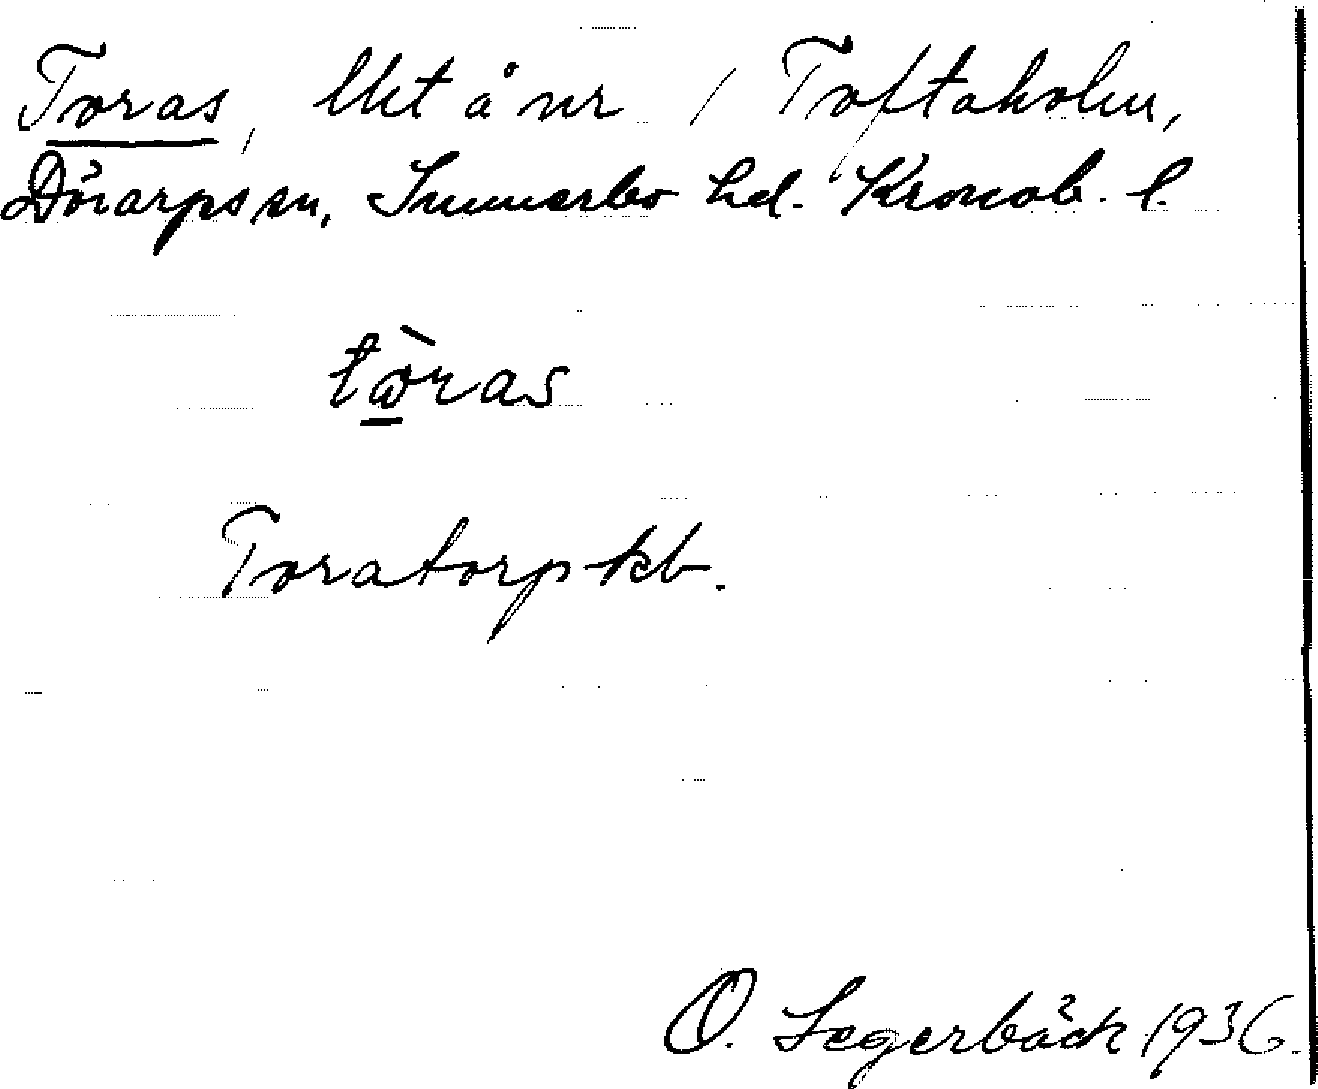 Toras, Utet å nr 1 Toftaholm,
Dörarps sn, Sunnerbo hd. Kronob. l.
tòras
Toratorp kb.
O. Segerbäck 1936.